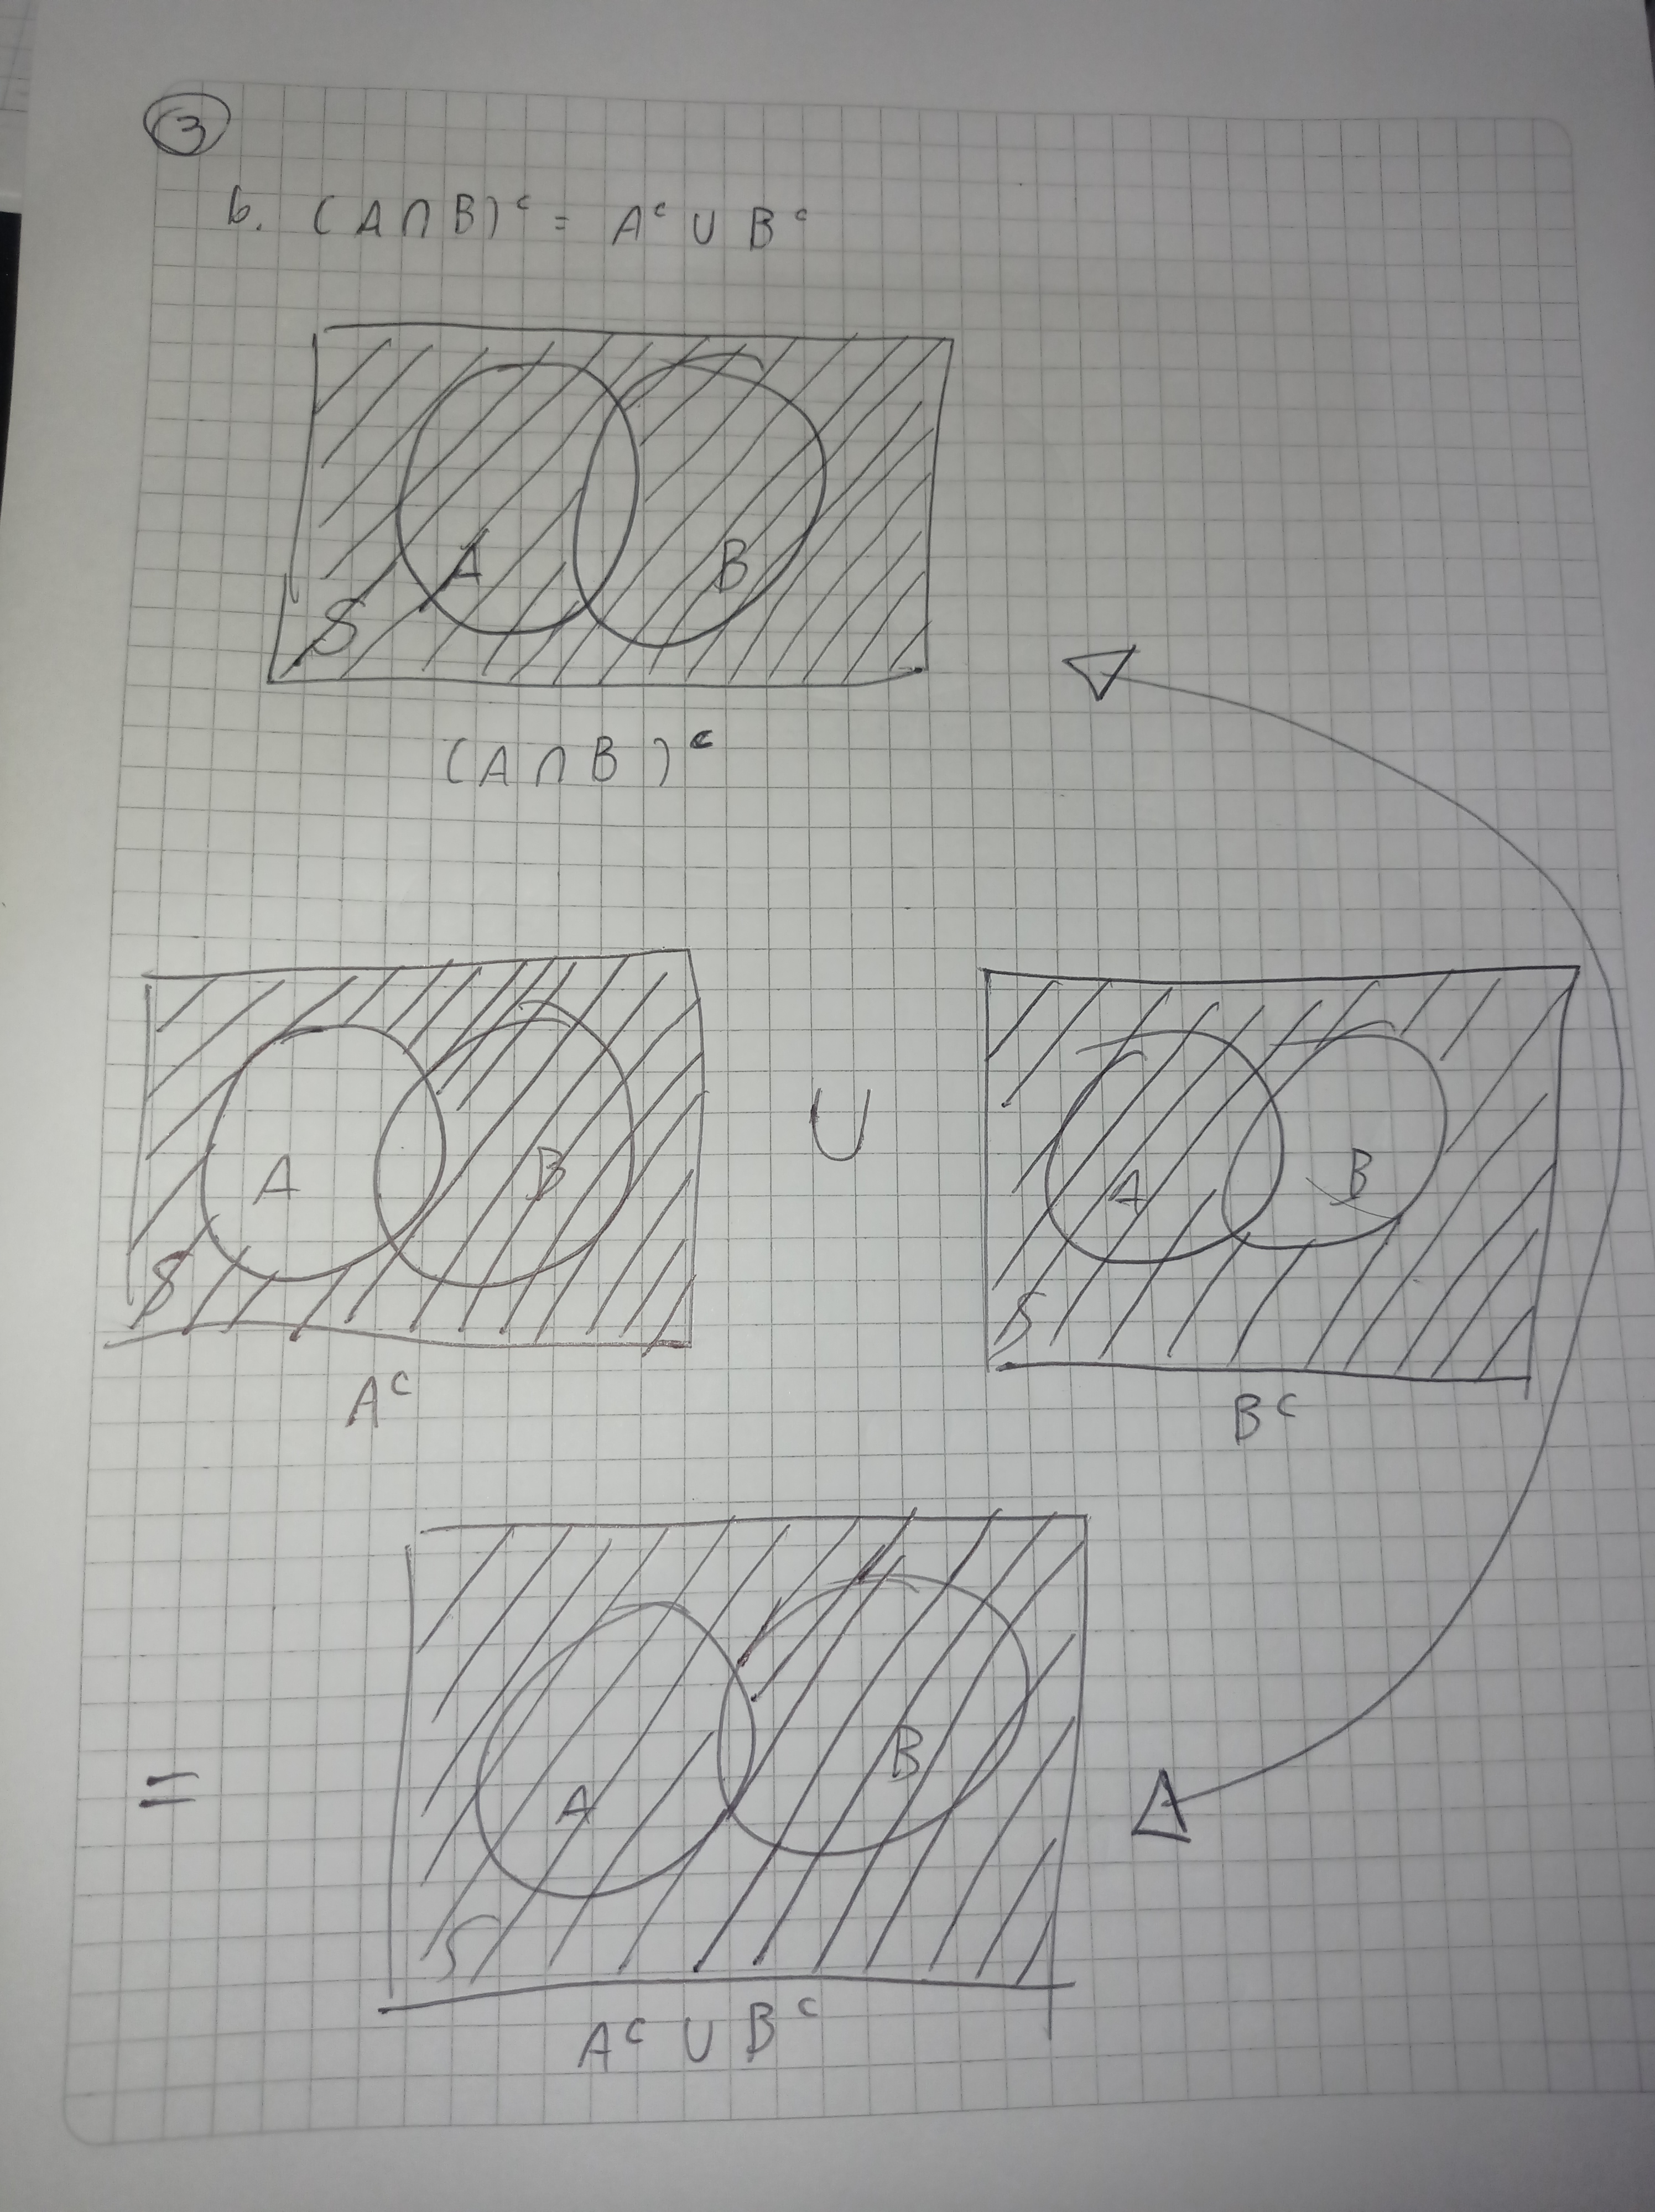 3
b. (A ∩ B)ᶜ = Aᶜ ∪ Bᶜ
A B
S
(A ∩ B)ᶜ
A B ∪ A B
S S
Aᶜ Bᶜ
B
= A
S
Aᶜ ∪ Bᶜ